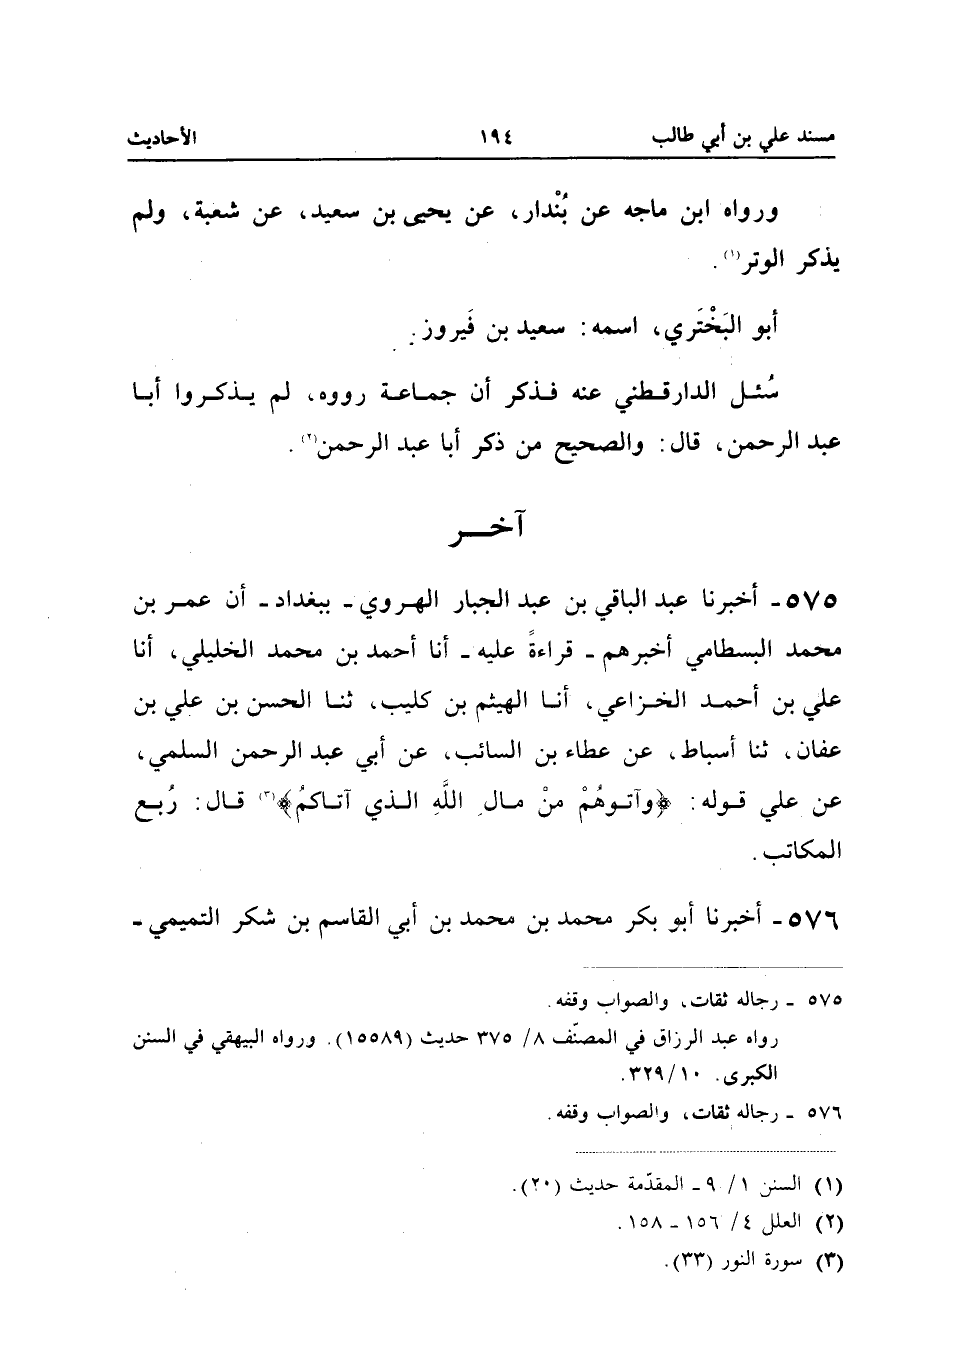 مسند علي بن أبي طالب ١٩٤ الأحاديث
ورواه ابن ماجه عن بُنْدار، عن يحيى بن سعيد، عن شعبة، ولم
يذكر الوتر(١).
أبو البَخْتَري، اسمه: سعيد بن فَيروز.
سُئل الدارقطني عنه فذكر أن جماعة رووه، لم يذكروا أبا
عبد الرحمن، قال: والصحيح من ذكر أبا عبد الرحمن(٢).
آخر
٥٧٥ـ أخبرنا عبد الباقي بن عبد الجبار الهروي ـ ببغداد ـ أن عمر بن
محمد البسطامي أخبرهم ـ قراءةً عليه ـ أنا أحمد بن محمد الخليلي، أنا
علي بن أحمد الخزاعي، أنا الهيثم بن كليب، ثنا الحسن بن علي بن
عفان، ثنا أسباط، عن عطاء بن السائب، عن أبي عبد الرحمن السلمي،
عن علي قوله: ﴿وآتوهُمْ منْ مالِ اللَّهِ الذي آتاكمُ﴾(٣) قال: رُبع
المكاتب.
٥٧٦ـ أخبرنا أبو بكر محمد بن محمد بن أبي القاسم بن شكر التميمي ـ
٥٧٥ ـ رجاله ثقات، والصواب وقفه.
رواه عبد الرزاق في المصنّف ٨/ ٣٧٥ حديث (١٥٥٨٩). ورواه البيهقي في السنن
الكبرى. ١٠/ ٣٢٩.
٥٧٦ ـ رجاله ثقات، والصواب وقفه.
(١) السنن ١/ ٩ ـ المقدّمة حديث (٢٠).
(٢) العلل ٤/ ١٥٦ ـ ١٥٨.
(٣) سورة النور (٣٣).